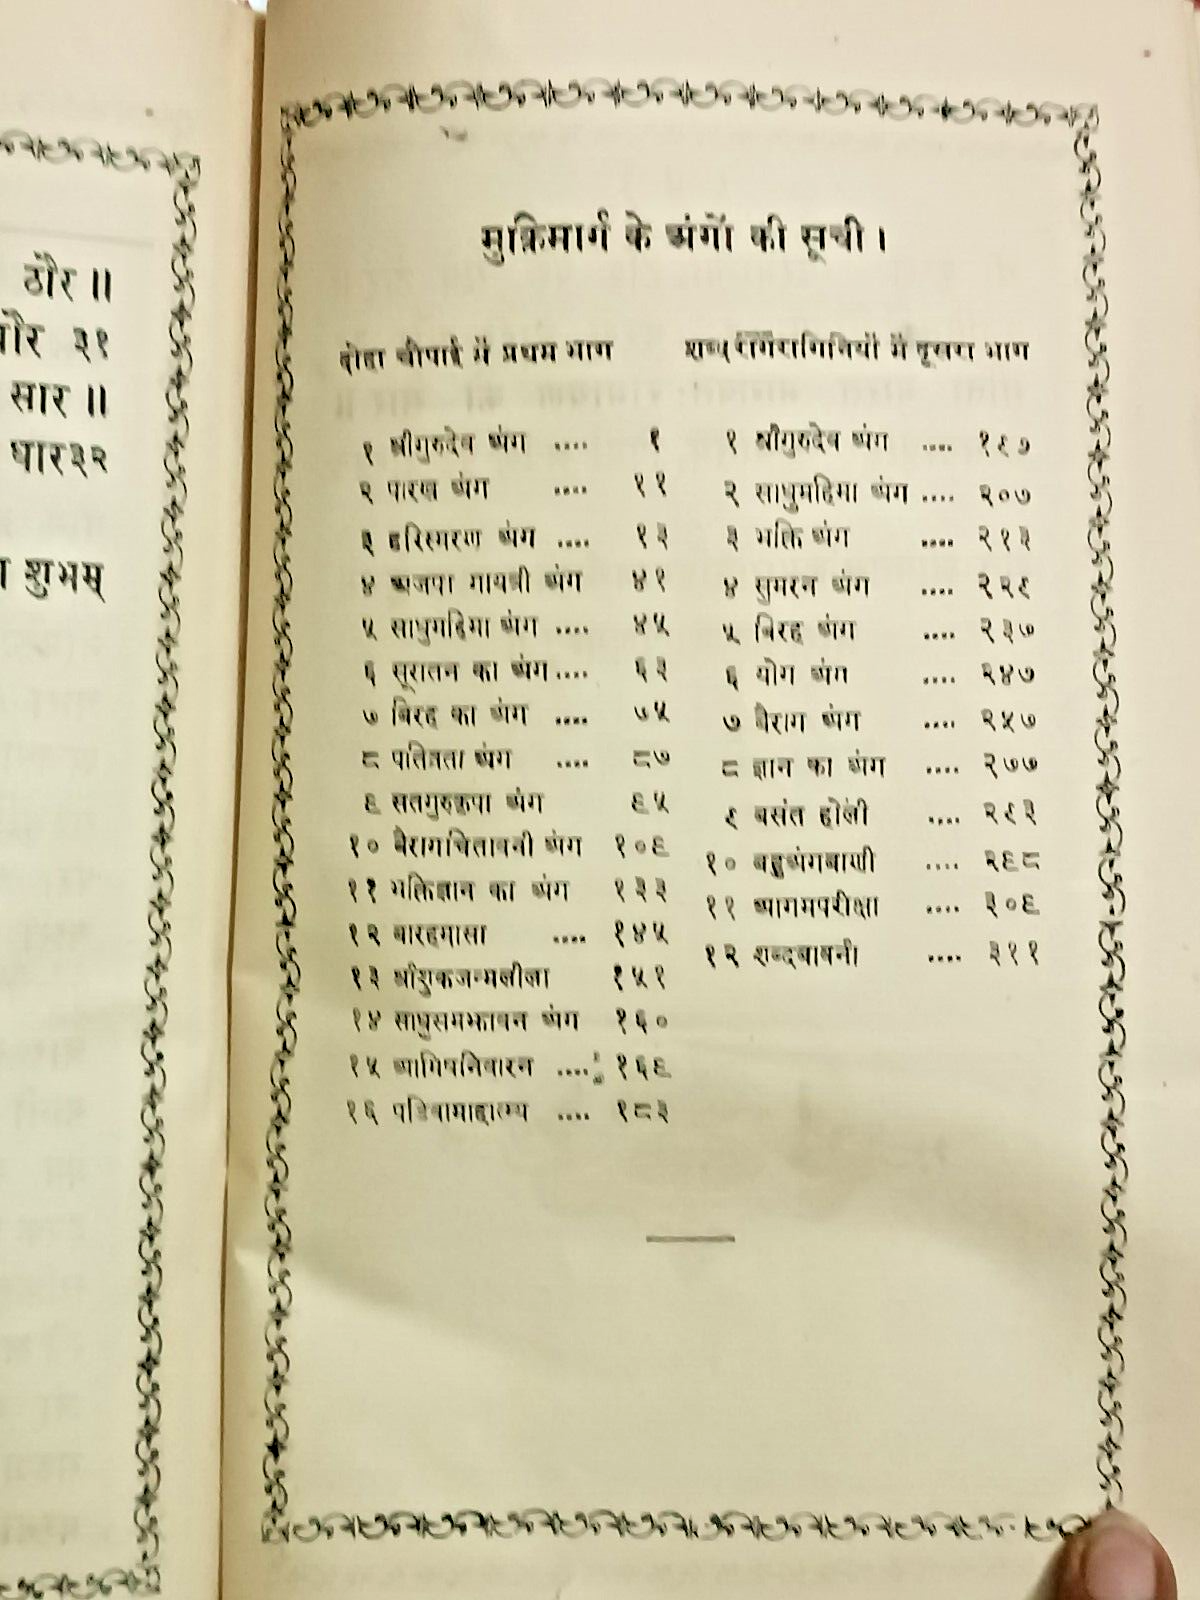 ठौर ॥
और ३१
सार ॥
धार३२
शुभम्
मुक्तिमार्ग के अंगों की सूची ।
दोहा चौपाई में प्रथम भाग
१ श्रीगुरुदेव अंग .... १
२ पारख अंग .... ११
३ हरिस्मरण अंग .... १३
४ अजपा गायत्री अंग ४१
५ साधुमहिमा अंग .... ४५
६ सूरातन का अंग .... ६३
७ बिरह का अंग .... ७५
८ पतिव्रता अंग .... ८७
९ सतगुरुकृपा अंग ९५
१० बैरागचितावनी अंग १०९
११ भक्तिज्ञान का अंग १३३
१२ बारहमासा .... १४५
१३ श्रीशुकजन्मलीला १५१
१४ साधुसमझावन अंग १६०
१५ आमिषनिवारन .... १६९
१६ पडिवामाहात्म्य .... १८३
शब्द रागरागिनियों में दूसरा भाग
१ श्रीगुरुदेव अंग .... १९७
२ साधुमहिमा अंग .... २०७
३ भक्ति अंग .... २१३
४ सुमरन अंग .... २२९
५ बिरह अंग .... २३७
६ योग अंग .... २४७
७ बैराग अंग .... २५७
८ ज्ञान का अंग .... २७७
९ बसंत होली .... २९३
१० बहुअंगबाणी .... २९८
११ आगमपरीक्षा .... ३०९
१२ शब्दबावनी .... ३११